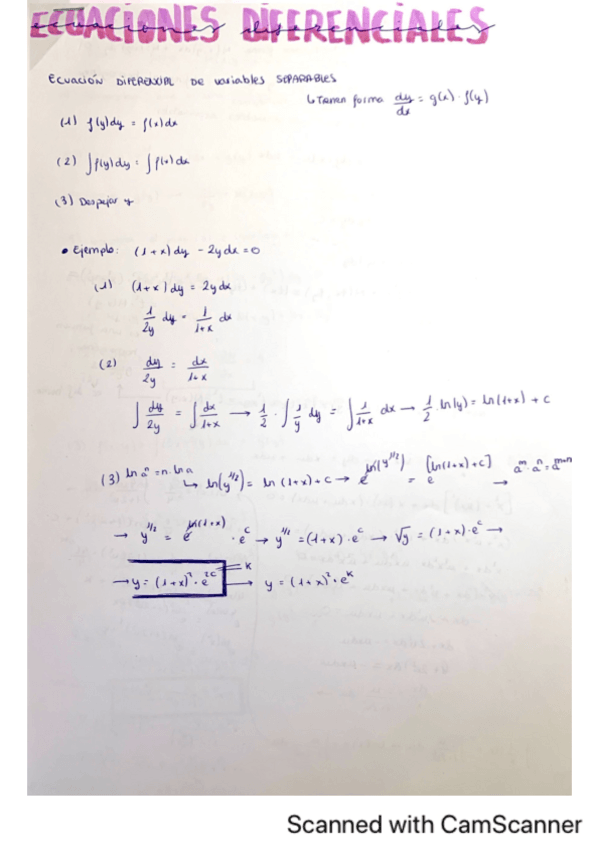 ECUACIONES DIFERENCIALES
ECUACIÓN DIFERENCIAL DE variables SEPARABLES
↳ Tienen forma dy/dx = g(x) · f(y)
(1) f(y)dy = f(x)dx
(2) ∫f(y)dy = ∫f(x)dx
(3) Despejar y
• Ejemplo: (1+x)dy - 2ydx = 0
(1) (1+x)dy = 2ydx
1/2y dy = 1/1+x dx
(2) dy/2y = dx/1+x
∫ dy/2y = ∫ dx/1+x → 1/2 · ∫ 1/y dy = ∫ 1/1+x dx → 1/2 · ln(y) = ln(1+x) + c
(3) ln aⁿ = n · ln a
↳ ln(y^1/2) = ln(1+x) + c → e^ln(y^1/2) = e^[ln(1+x)+c] → a^m · a^n = a^m+n
→ y^1/2 = e^ln(1+x) · e^c → y^1/2 = (1+x) · e^c → √y = (1+x) · e^c →
→ y = (1+x)² · e^2c K → y = (1+x)² · e^K
Scanned with CamScanner